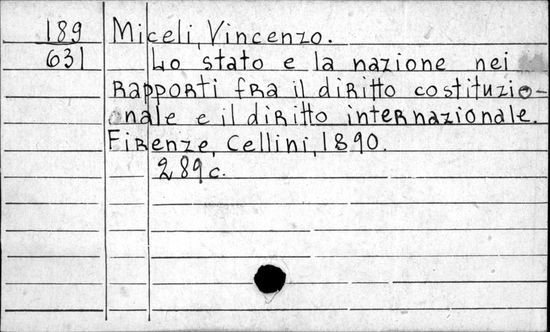 189 Miceli, Vincenzo.
631 Lo stato e la nazione nei
rapporti fra il diritto costituzio-
nale e il diritto internazionale.
Firenze, Cellini, 1890.
289 c.